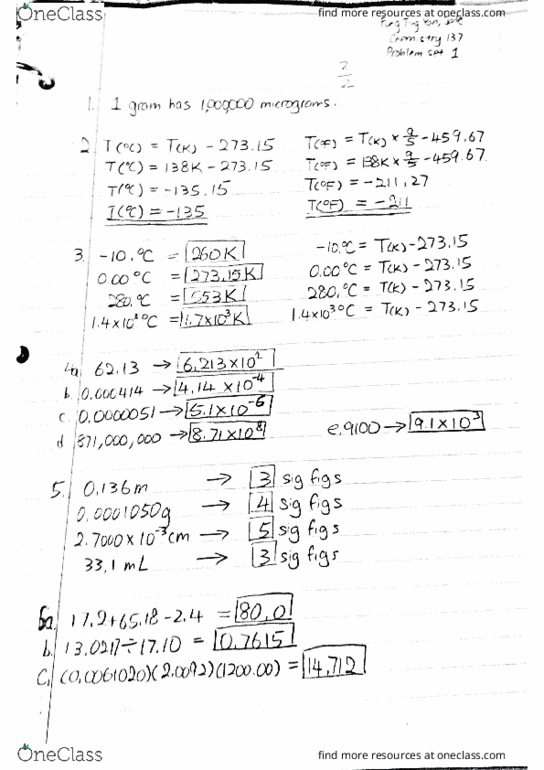 OneClass
find more resources at oneclass.com
Chemistry 137
Problem set 1
2/2
1. 1 gram has 1,000,000 micrograms.
2. T(°C) = T(K) - 273.15
T(°F) = T(K) × 9/5 - 459.67
T(°C) = 138K - 273.15
T(°F) = 138K × 9/5 - 459.67
T(°C) = -135.15
T(°F) = -211.27
T(°C) = -135
T(°F) = -211
3. -10.°C = 260K
-10.°C = T(K) - 273.15
0.00°C = 273.15K
0.00°C = T(K) - 273.15
280.°C = 553K
280.°C = T(K) - 273.15
1.4×10³°C = 1.7×10³K
1.4×10³°C = T(K) - 273.15
4a. 62.13 → 6.213×10¹
b. 0.000414 → 4.14 × 10⁻⁴
c. 0.0000051 → 5.1×10⁻⁶
d. 871,000,000 → 8.71×10⁸
e. 9100 → 9.1×10³
5. 0.136m → 3 sig figs
0.0001050g → 4 sig figs
2.7000×10⁻³cm → 5 sig figs
33.1 mL → 3 sig figs
6a. 17.2+65.18-2.4 = 80.0
b. 13.0217÷17.10 = 0.7615
C. (0.0061020)(2.0092)(1200.00) = 14.712
OneClass
find more resources at oneclass.com